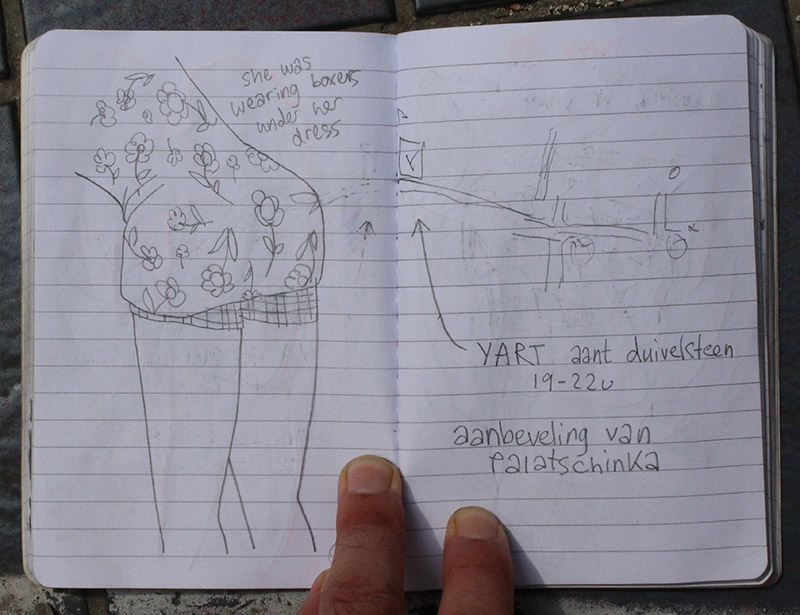 she was
wearing boxers
under her
dress
YART aant duivelsteen
19-22u
aanbeveling van
palatschinka